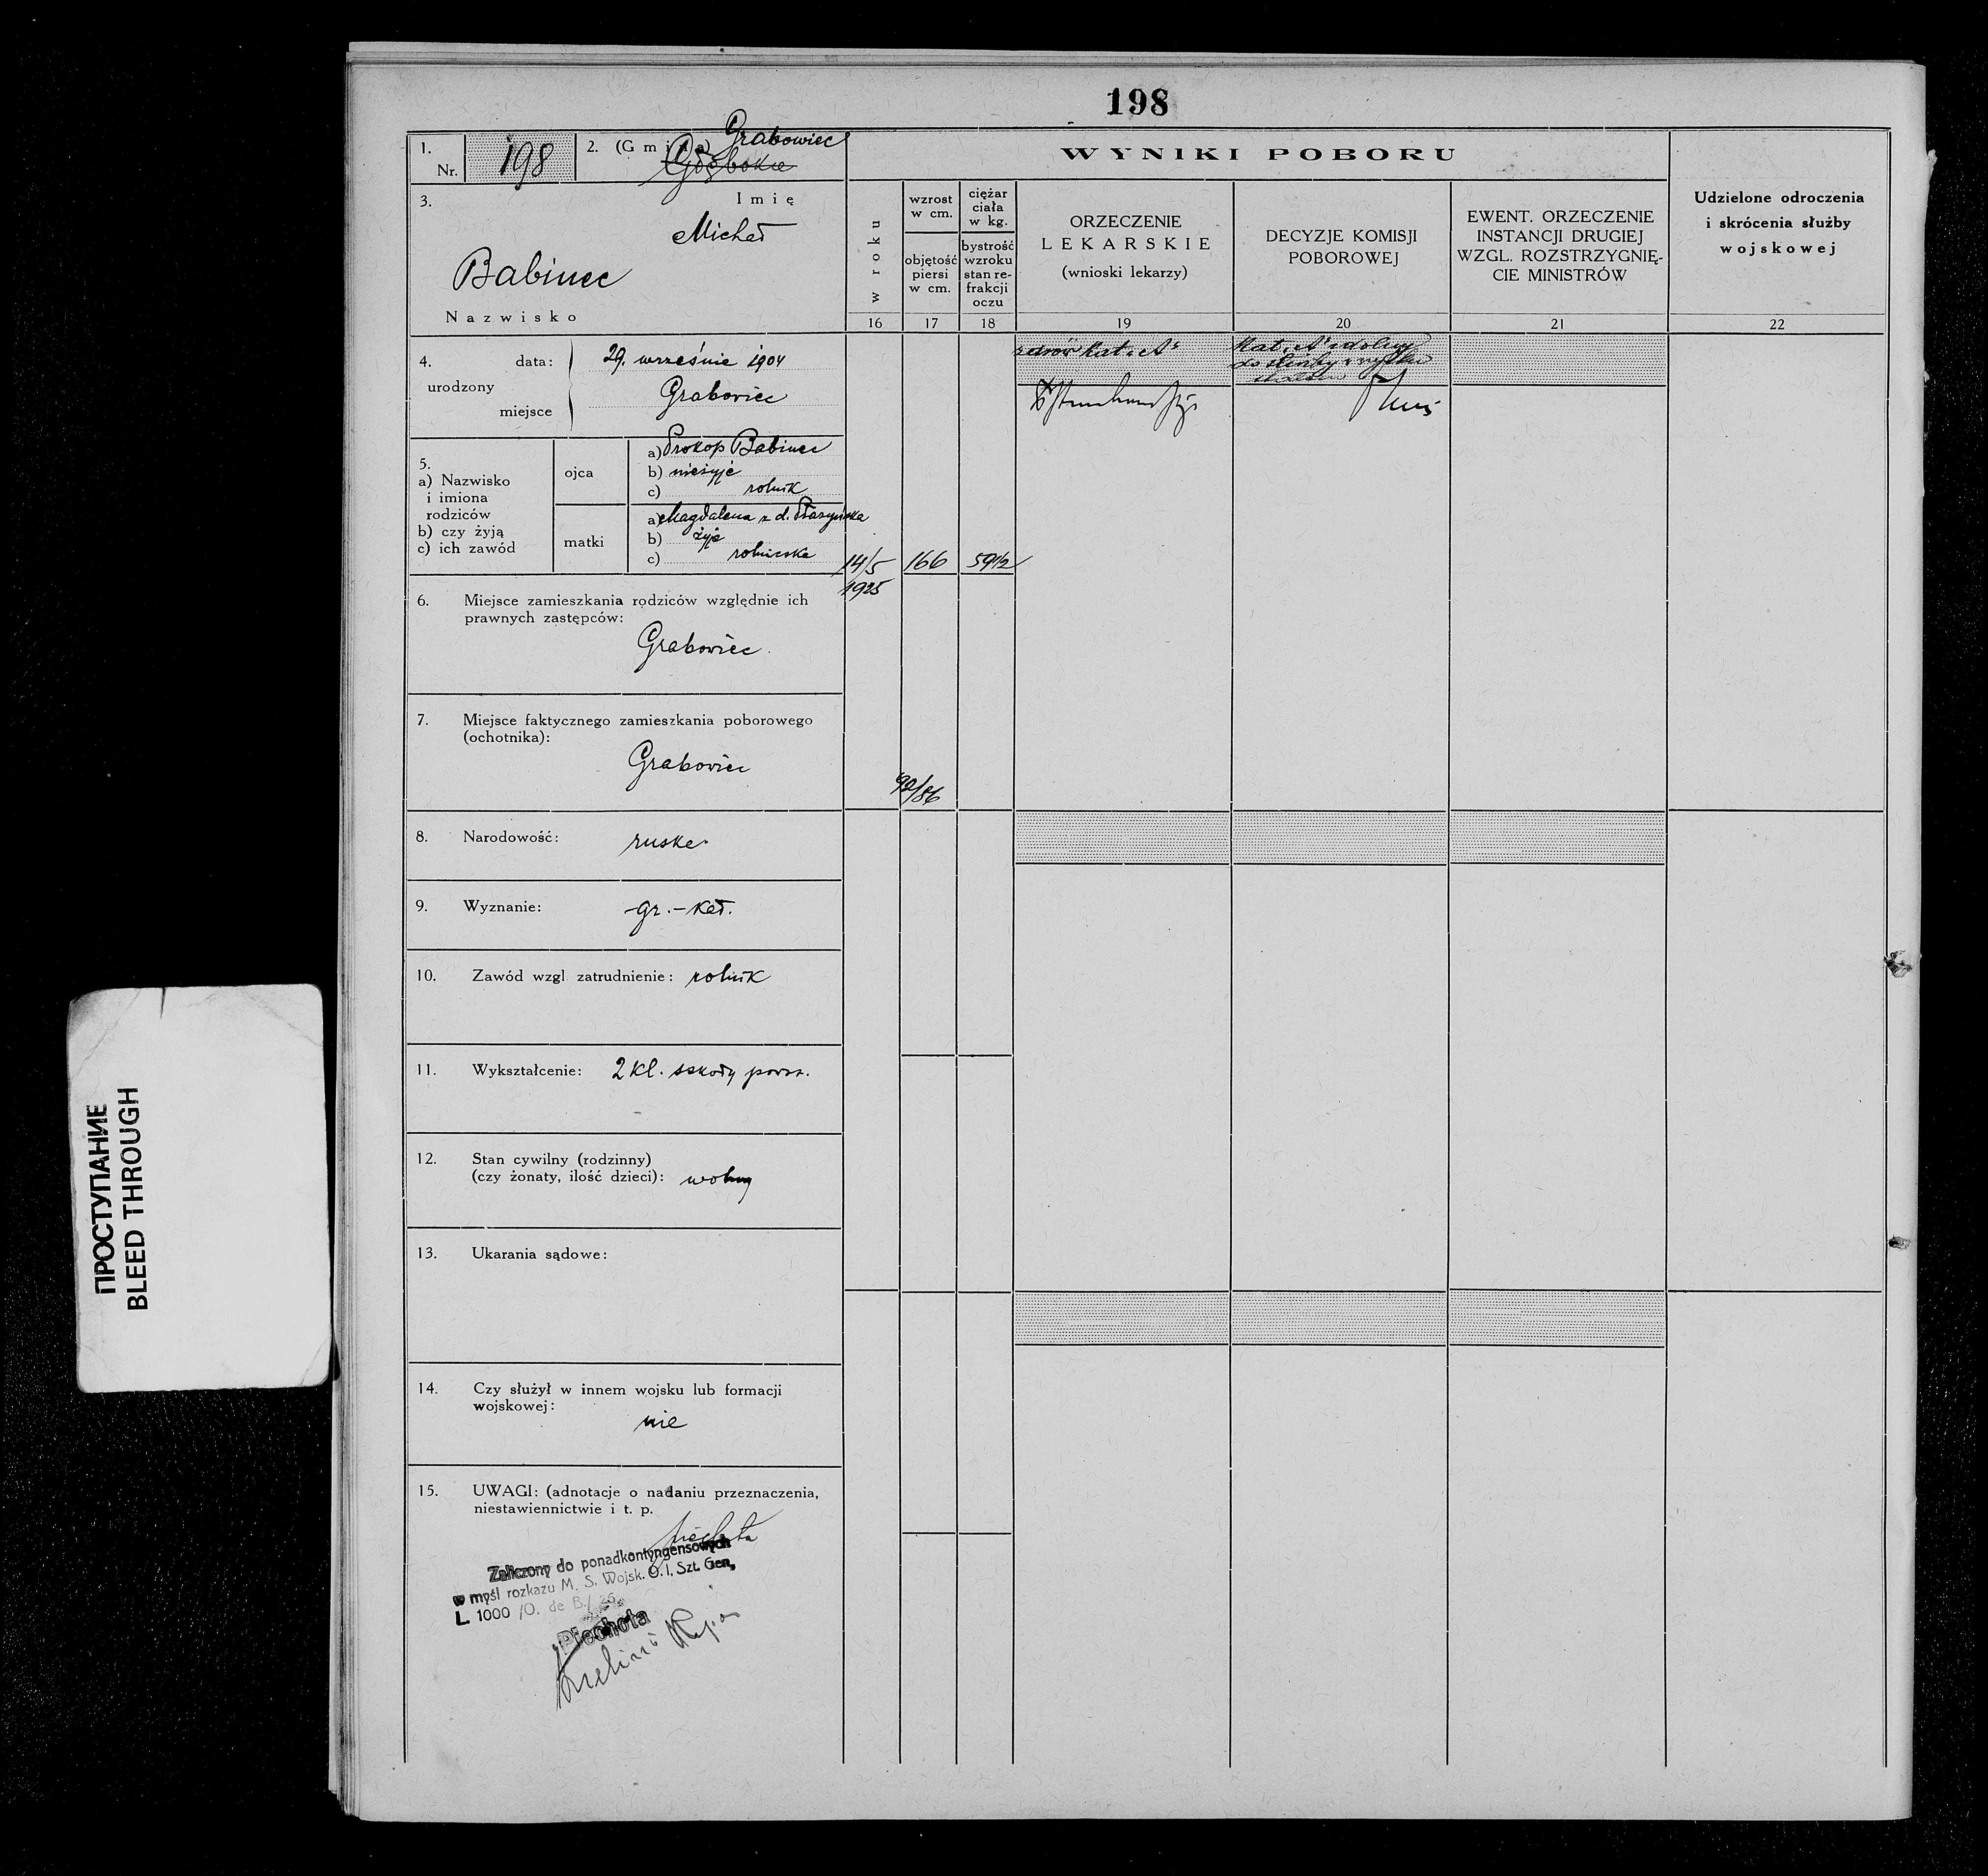 198
1.
Nr. 198
2. (Gmina) Grabowiec
Głębokie
3.
Imię
Michał
Babinec
Nazwisko
4.
urodzony
data: 29. wrześnie 1904
miejsce Grabowiec
5.
a) Nazwisko
i imiona
rodziców
b) czy żyją
c) ich zawód
ojca
a) Prokop Babinec
b) nieżyje
c) rolnik
matki
a) Magdalena z d.
b) żyje
c) rolniczka
6. Miejsce zamieszkania rodziców względnie ich
prawnych zastępców:
Grabowiec
7. Miejsce faktycznego zamieszkania poborowego
(ochotnika):
Grabowiec
8. Narodowość: ruska
9. Wyznanie: gr.-kat.
10. Zawód wzgl. zatrudnienie: rolnik
11. Wykształcenie: 2 kl. szkoły powsz.
12. Stan cywilny (rodzinny)
(czy żonaty, ilość dzieci): wolny
13. Ukarania sądowe:
14. Czy służył w innem wojsku lub formacji
wojskowej:
nie
15. UWAGI: (adnotacje o nadaniu przeznaczenia,
niestawiennictwie i t. p.
piechota
Zaliczony do ponadkontyngensowych
w myśl rozkazu M. S. Wojsk. O. I. Szt. Gen.
L. 1000 /O. de B./ 25
Piechota
WYNIKI POBORU
w roku
16
wzrost
w cm.
objętość
piersi
w cm.
17
ciężar
ciała
w kg.
bystrość
wzroku
stan re-
frakcji
oczu
18
ORZECZENIE
LEKARSKIE
(wnioski lekarzy)
19
DECYZJE KOMISJI
POBOROWEJ
20
EWENT. ORZECZENIE
INSTANCJI DRUGIEJ
WZGL. ROZSTRZYGNIĘ-
CIE MINISTRÓW
21
Udzielone odroczenia
i skrócenia służby
wojskowej
22
zdrów kat. A
Kat. A zdolny
do służby
14/5 166 59 1/2
1925
90/86
ПРОСТУПАНИЕ
BLEED THROUGH